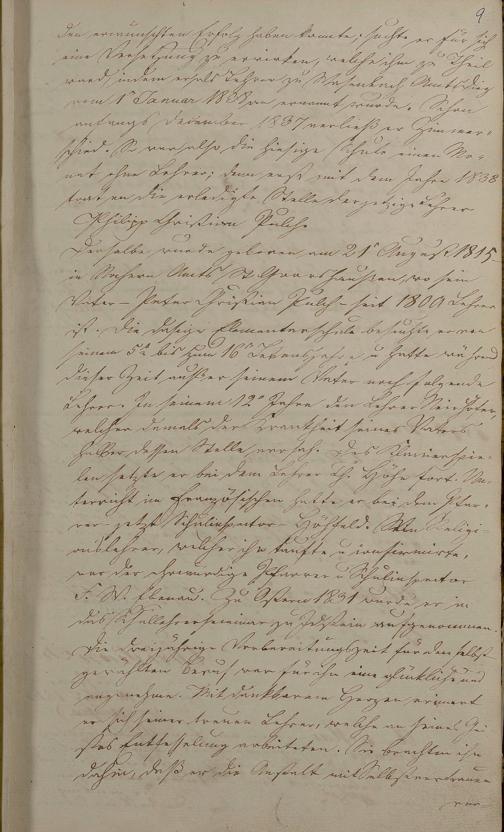 9
den erwünschten Erfolg haben konnte, suchte er für sich
eine Versetzung zu erwirken, welche ihm zu Theil
ward, indem er als Lehrer zu Amts
vom 1t Januar 1838 an ernannt wurde. Schon
anfangs Dezember 1837 verließ er
schied. So war also die hiesige Schule einen Mo-
nat ohne Lehrer; denn erst mit dem Jahre 1838
trat an die erledigte Stelle der jetzige Lehrer
Philipp Christian Pulch.
Derselbe wurde geboren am 21t August 1815
in Nochern Amts St. Goarshausen, wo sein
Vater – Peter Christian Pulch – seit 1800 Lehrer
ist. Die dasige Elementarschule besuchte er von
seinem 5n bis zum 16n Lebensjahre u hatte während
dieser Zeit außer seinem Vater noch folgende
Lehrer. In seinem 12n Jahre den Lehrer
welcher damals der Krankheit seines Vaters
halber dessen Stelle versah. Das Klavierspie-
len setzte er bei dem Lehrer Höhn fort. Un-
terricht im Französischen hatte er bei dem Pfar-
rer – jetzt Schulinspector – Religi-
onslehrer, welcher ihn taufte u confirmirte,
war der ehrwürdige Pfarrer u Schulinspector
F. W. Ebenau. Zu Ostern 1831 wurde er in
das Schullehrerseminar zu Idstein aufgenommen.
Die dreijährige Vorbereitungszeit für den selbst
gewählten Beruf war für ihn eine glückliche und
angenehme. Mit dankbarem Herzen erinnert
er sich seiner treuen Lehrer, welche an seines Gei-
stes Entfesselung arbeiteten. Sie brachten ihn
dahin, daß er die Anstalt mit Selbstvertrauen
ver-